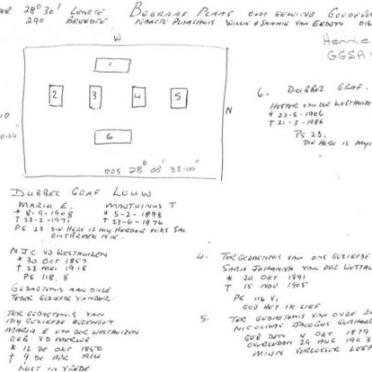 28° 30' LENGTE
BEGRAAF PLAAS
290 BREEDTE
PLAASHUIS WILLIE & SANNIE VAN
Hennie
GGSA
W
1
2 3 4 5
N
6
OOS 28° 08' 33.00"
6. DUBBEL GRAF.
HESTER VAN DER WESTHUIZ
* 23-5-1906
† 21-3-1986
PS 23.
DIE HERE IS MY
DUBBEL GRAF LOUW
MARIA E. MARTHINUS T
* 8-9-1908 * 5-2-1898
† 23-2-1971 † 23-6-1976
PS 23 DIE HERE IS MY HERDER NIKS SAL
ONTBREEK NIE.
N J C VD WESTHUIZEN
* 30 OKT 1857
† 23 MEI 1918
PS 118. 8
GEDAGTENIS AAN ONZE
TEDER GELIEFDE VADER.
TER GEDAGTENIS VAN
MY GELIEFDE
MARIA E VAN DER WESTHUIZEN
GEB VD MERWE
* 12 DE OKT 1850
† 9 DE APR 1914
RUST IN VREDE
4. TER GEDAGTENIS VAN ONS GELIEFDE
SARA JOHANNA VAN DER WESTHU
* 20 OKT 1891
† 15 NOV 1905
PS 116 V1
GOD HET IK LIEF
5. TER GEDAGTENIS VAN ONZE
NICOLAAS JACOBUS
GEB DEN 4 OKT 1879
OVERLEDEN 29 AUG 1903
MIJN VERLOSSER LEEFT